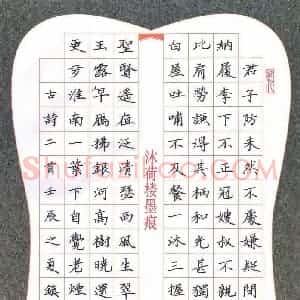 君子防未然不處嫌疑間
納履李下不正冠嫂叔不親
比肩勞謙得其柄和光甚獨
白屋吐哺不及餐一沐三握
沐雨楼墨痕
聖賢遙夜泛清瑟西風生翠
玉露早雁拂金河高樹曉還
更多淮南一葉下自覺洞庭
古詩二首壬辰之夏